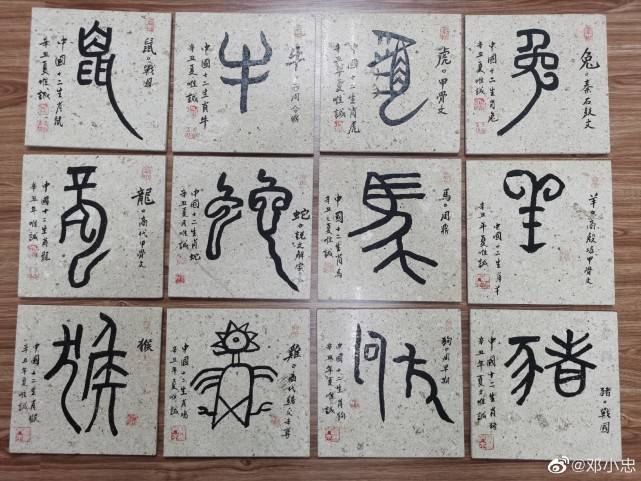 鼠
鼠。戰國
中國十二生肖鼠
辛丑夏惟誠
牛
牛。西周金文
中國十二生肖牛
辛丑夏惟誠
虎
虎。甲骨文
中國十二生肖虎
辛丑夏惟誠
兔
兔。秦石鼓文
中國十二生肖兔
辛丑夏惟誠
龍
龍。商代甲骨文
中國十二生肖龍
辛丑年夏惟誠
蛇
蛇。說文解字
中國十二生肖蛇
辛丑夏惟誠
馬
馬。周鼎
中國十二生肖馬
辛丑夏惟誠
羊
羊。商殷墟甲骨文
中國十二生肖羊
辛丑年夏惟誠
猴
猴
中國十二生肖猴
辛丑年夏惟誠
雞。商代
中國十二生肖鸡
辛丑年夏惟誠
狗
狗。周早期
中國十二生肖狗
辛丑年夏惟誠
豬
豬。戰國
中國十二生肖豬
辛丑年夏惟誠
@邓小忠